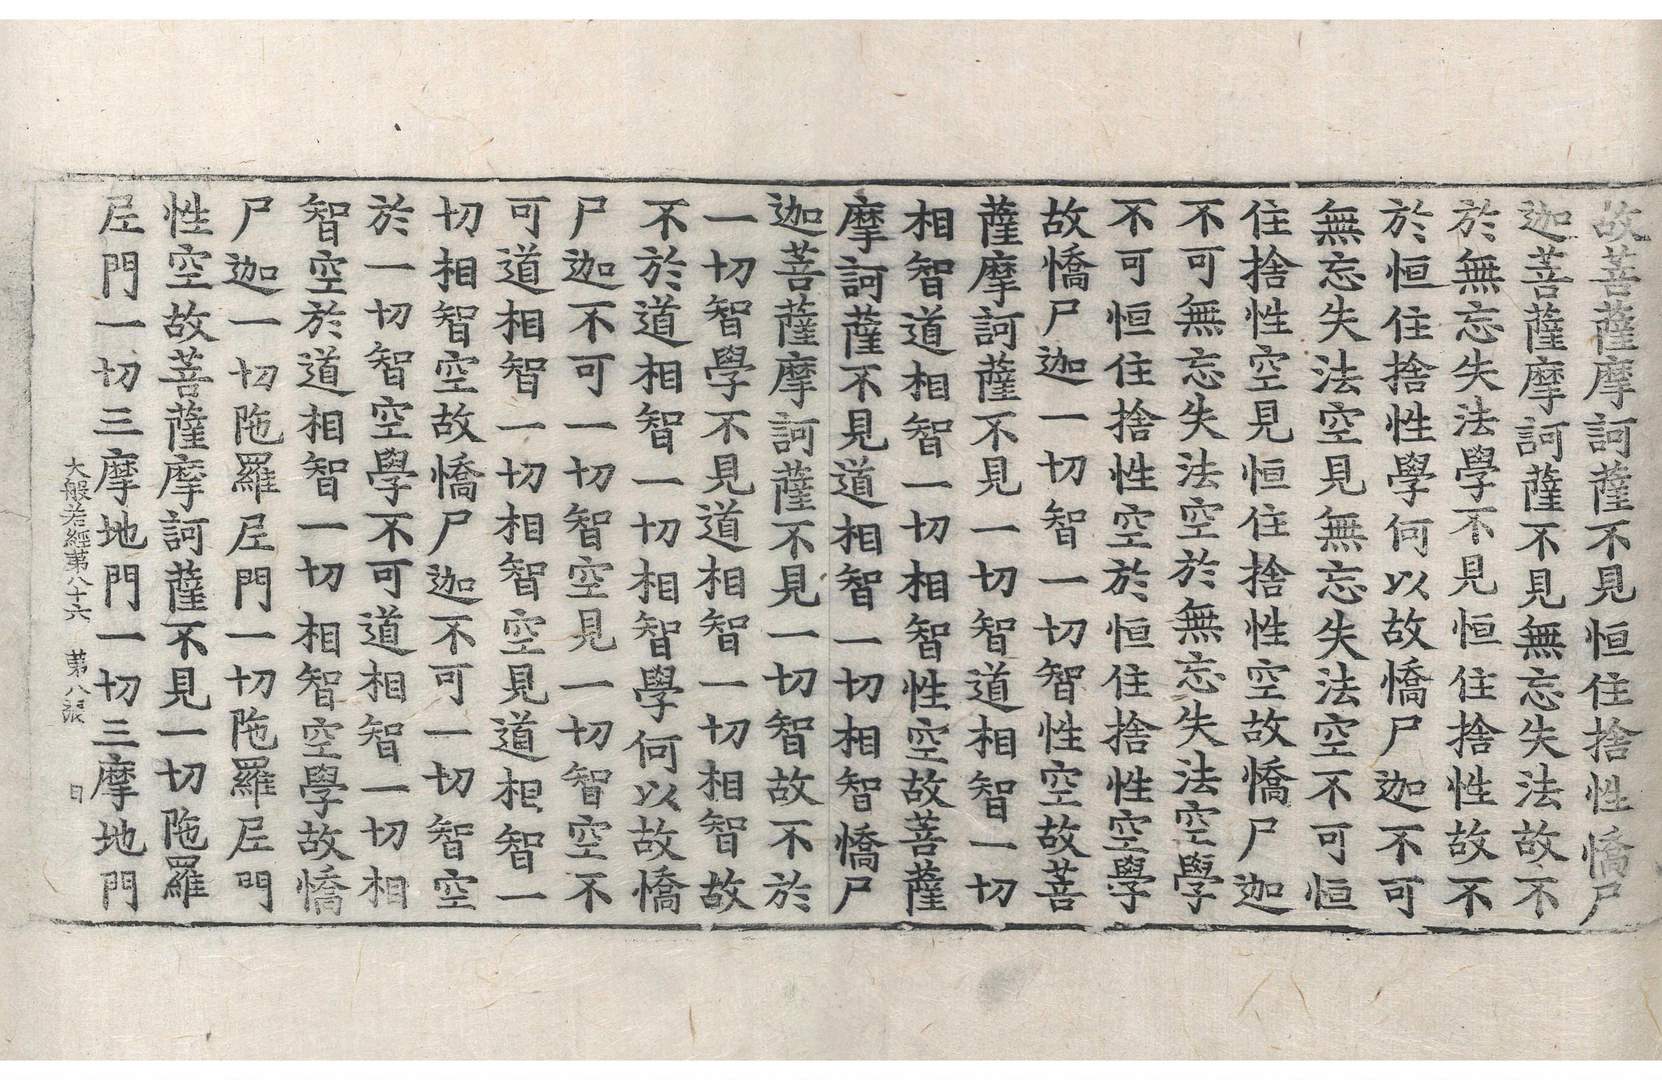 故菩薩摩訶薩不見恒住捨性憍尸
迦菩薩摩訶薩不見無忘失法故不
於無忘失法學不見恒住捨性故不
於恒住捨性學何以故憍尸迦不可
無忘失法空見無忘失法空不可恒
住捨性空見恒住捨性空故憍尸迦
不可無忘失法空於無忘失法空學
不可恒住捨性空於恒住捨性空學
故憍尸迦一切智一切智性空故菩
薩摩訶薩不見一切智道相智一切
相智道相智一切相智性空故菩薩
摩訶薩不見道相智一切相智憍尸
迦菩薩摩訶薩不見一切智故不於
一切智學不見道相智一切相智故
不於道相智一切相智學何以故憍
尸迦不可一切智空見一切智空不
可道相智一切相智空見道相智一
切相智空故憍尸迦不可一切智空
於一切智空學不可道相智一切相
智空於道相智一切相智空學故憍
尸迦一切陁羅𡰱門一切陁羅𡰱門
性空故菩薩摩訶薩不見一切陁羅
𡰱門一切三摩地門一切三摩地門
大般若經第八十六 第八張 日